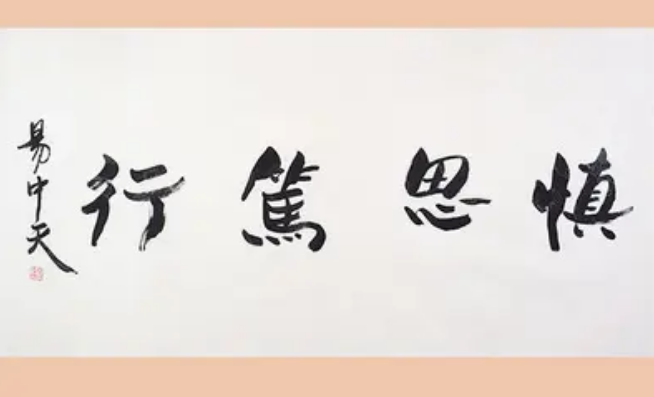 慎思篤行
易中天